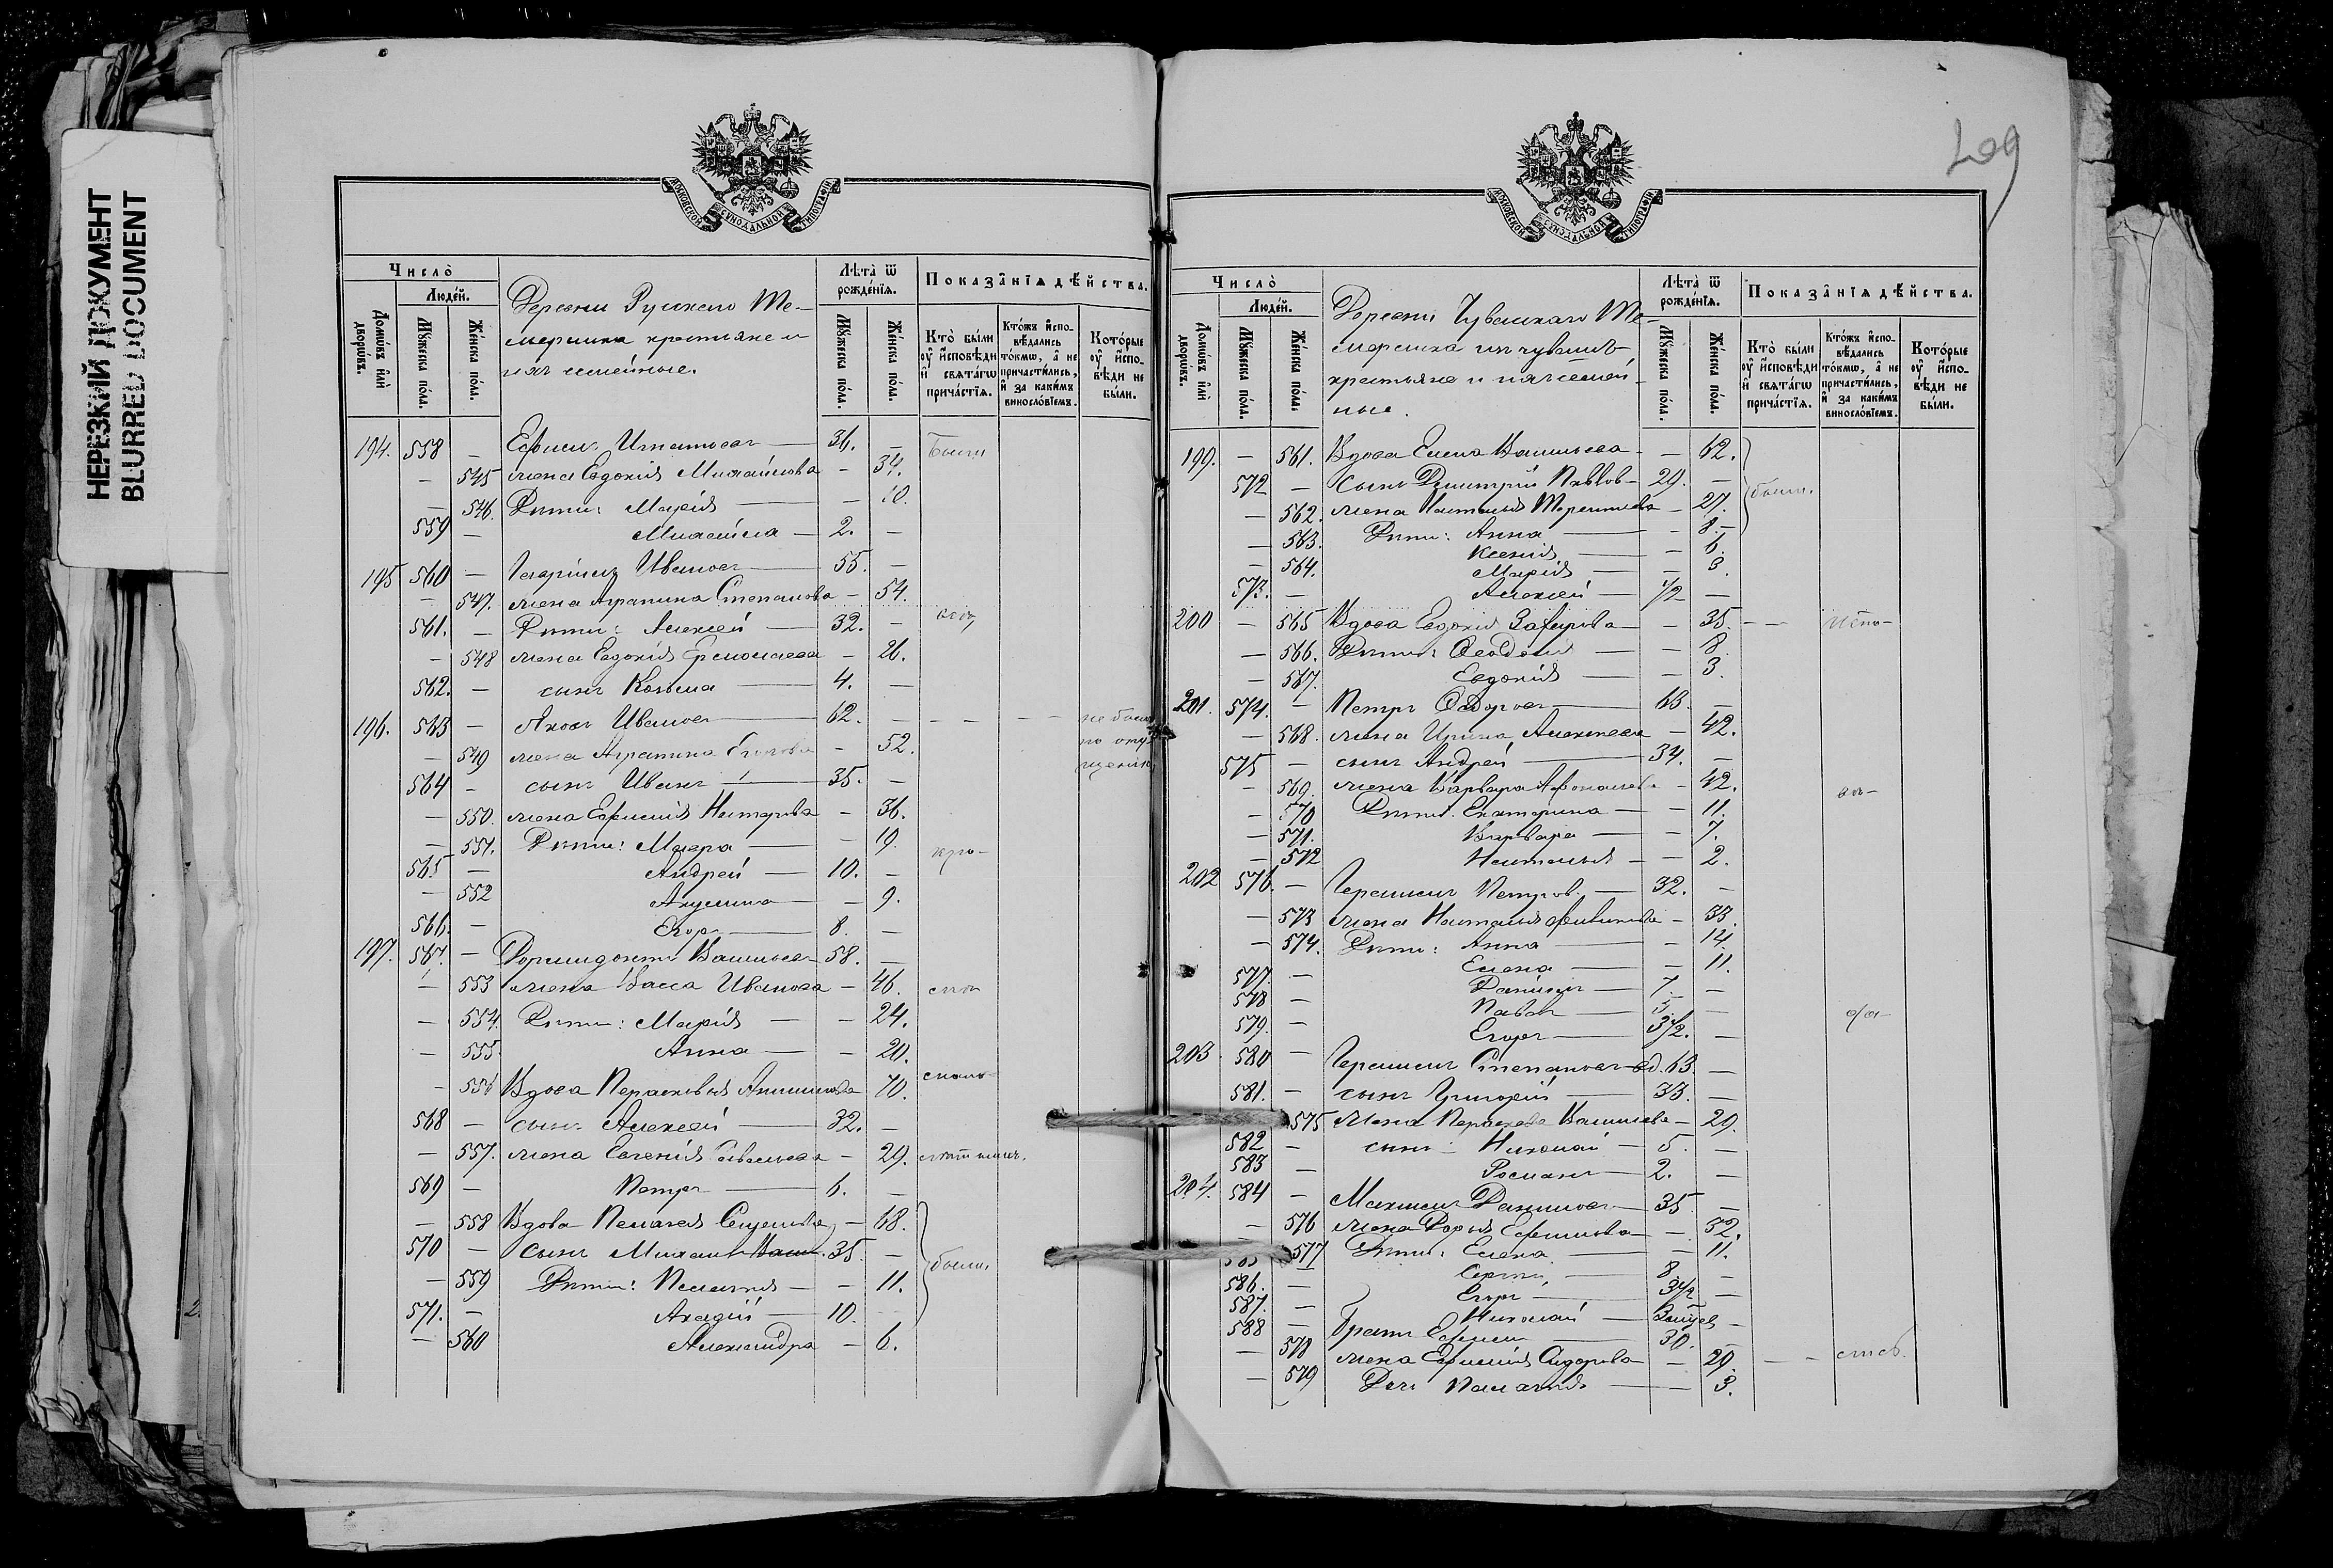 НЕРЕЗКИЙ ДОКУМЕНТ
BLURRED DOCUMENT
МОСКОВСКОЙ СѴНОДАЛЬНОЙ ТИПОГРАФІИ
Число̀
Людей.
Домѡвъ или дворѡвъ.
Мꙋжеска пола.
Женска пола.
Деревни Русскаго Те-
мерлика крестьяне и
ихъ семейные.
Лѣта̀ ѿ рожде́нїѧ.
Мꙋжеска пола.
Женска пола.
Показа̂нїѧ дѣ́йства.
Кто̀ были оу҆ и҆сповѣди и҆ свѧта́гѡ прича́стїѧ.
Кто́жъ и҆спо-вѣдались то́кмѡ, а҆ не причасти́лись, и҆ за каки́мъ винослов́їемъ.
Кото́рые оу҆ и҆спо-вѣди не бы́ли.
194. 558 — Ефимъ Игнатьевъ — 36. — Были
— 545 жена Евдокія Михайлова — 34.
— 546. Дѣти: Марія — — 10.
559 — Михаилъ — 2. —
195 560 — Иванов — 55. —
— 547. жена Агрипина Степанова — 54.
561. — Дѣти: Алексѣй — 32. —
— 548 жена Евдокія Ермолаева — 26.
562. — сынъ Козьма — 4. —
196. 563 — Яковъ Ивановъ — 62. — не были
по опу-
щенію
— 549 жена Агрипина — 52.
564 — сынъ Иванъ — 35. —
— 550. жена Ефимія Нестерова — 36.
— 551. Дѣти: Мавра — — 19.
565 — Андрей — 10. —
— 552 Акулина — — 9.
566. — Егоръ — 8. —
197. 567. — Дормидонтъ Васильевъ — 58. —
— 553 жена Васса Иванова — 46.
— 554. Дѣти: Марія — — 24.
— 555. Анна — — 20.
— 556 Вдова Параскевья — 70.
568 — сынъ Алексѣй — 32. —
— 557. жена Евгенія Савельева — 29.
569 — Петръ — 6. —
— 558 Вдова Пелагея — 68.
570 — сынъ Михаилъ 35. — были.
— 559 Дѣти: Пелагія — — 11.
571. — Аркадій — 10.
— 560 Александра — 6.
209
МОСКОВСКОЙ СѴНОДАЛЬНОЙ ТИПОГРАФІИ
Число̀
Людей.
Домѡвъ или дворѡвъ.
Мꙋжеска пола.
Женска пола.
Деревни Чувашскаго Те-
мерлика изъ чувашъ
крестьяне и ихъ семей-
ные.
Лѣта̀ ѿ рожде́нїѧ.
Мꙋжеска пола.
Женска пола.
Показа̂нїѧ дѣ́йства.
Кто̀ были оу҆ и҆сповѣди и҆ свѧта́гѡ прича́стїѧ.
Кто́жъ и҆спо-вѣдались то́кмѡ, а҆ не причасти́лись, и҆ за каки́мъ винослов́їемъ.
Кото́рые оу҆ и҆спо-вѣди не бы́ли.
199. — 561. Вдова Елена Васильева — — 62.
572 — сынъ Димитрій Павлов — 29. — были.
— 562. жена Наталья Терентьева — 27.
— 563. Дѣти: Анна — — 8.
Ксенія — — 6.
— 564. Марія — — 3.
573. — Алексѣй — 1/2 —
200 — 565 Вдова Евдокія Захарова — — 35.
— 566. Дѣти: Ѳеодосія — — 8.
— 567. Евдокія — — 3.
201. 574. — Петръ Ѳедоровъ — 63. —
— 568. жена Ирина Алексѣева — 42.
575 — сынъ Андрей — 34. —
— 569. жена Варвара Афанасьева — 42.
— 570 Дѣти: Екатерина — — 11.
— 571. Варвара — — 7.
— 572 Наталья — — 2.
202 576. — Герасимъ Петров. — 32. —
— 573 жена Наталья Филипова — 33.
— 574. Дѣти: Анна — — 14.
Елена — — 11.
577. — Даніилъ — 7. —
578 — Павелъ — 5. —
579. — Егоръ — 3 1/2. —
203. 580 — Герасимъ Степановъ вд. 63. —
581. — сынъ Григорій — 33. —
575 жена Параскева Васильева — 29.
582 — сынъ: Николай — 5. —
583 — Романъ — 2. —
204. 584 — Максимъ Даниловъ — 35. —
— 576 жена Дарья Ефимова — 32.
577 Дѣти: Елена — — 11.
Сергѣй — 8 —
586. — Егоръ — 3 1/2 —
587. — Николай —
588 — Братъ Ефимъ — 30.
— 578 жена Ефимія Сидорова — — 20.
— 579 Дочь Палагія — — 3.